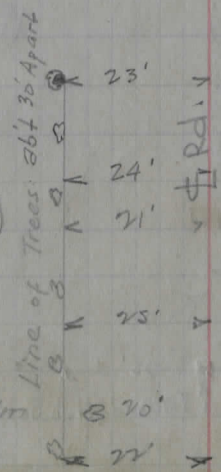 Line of Trees abt 30' Apart
23'
℄ Rd.
24'
21'
25'
20'
22'